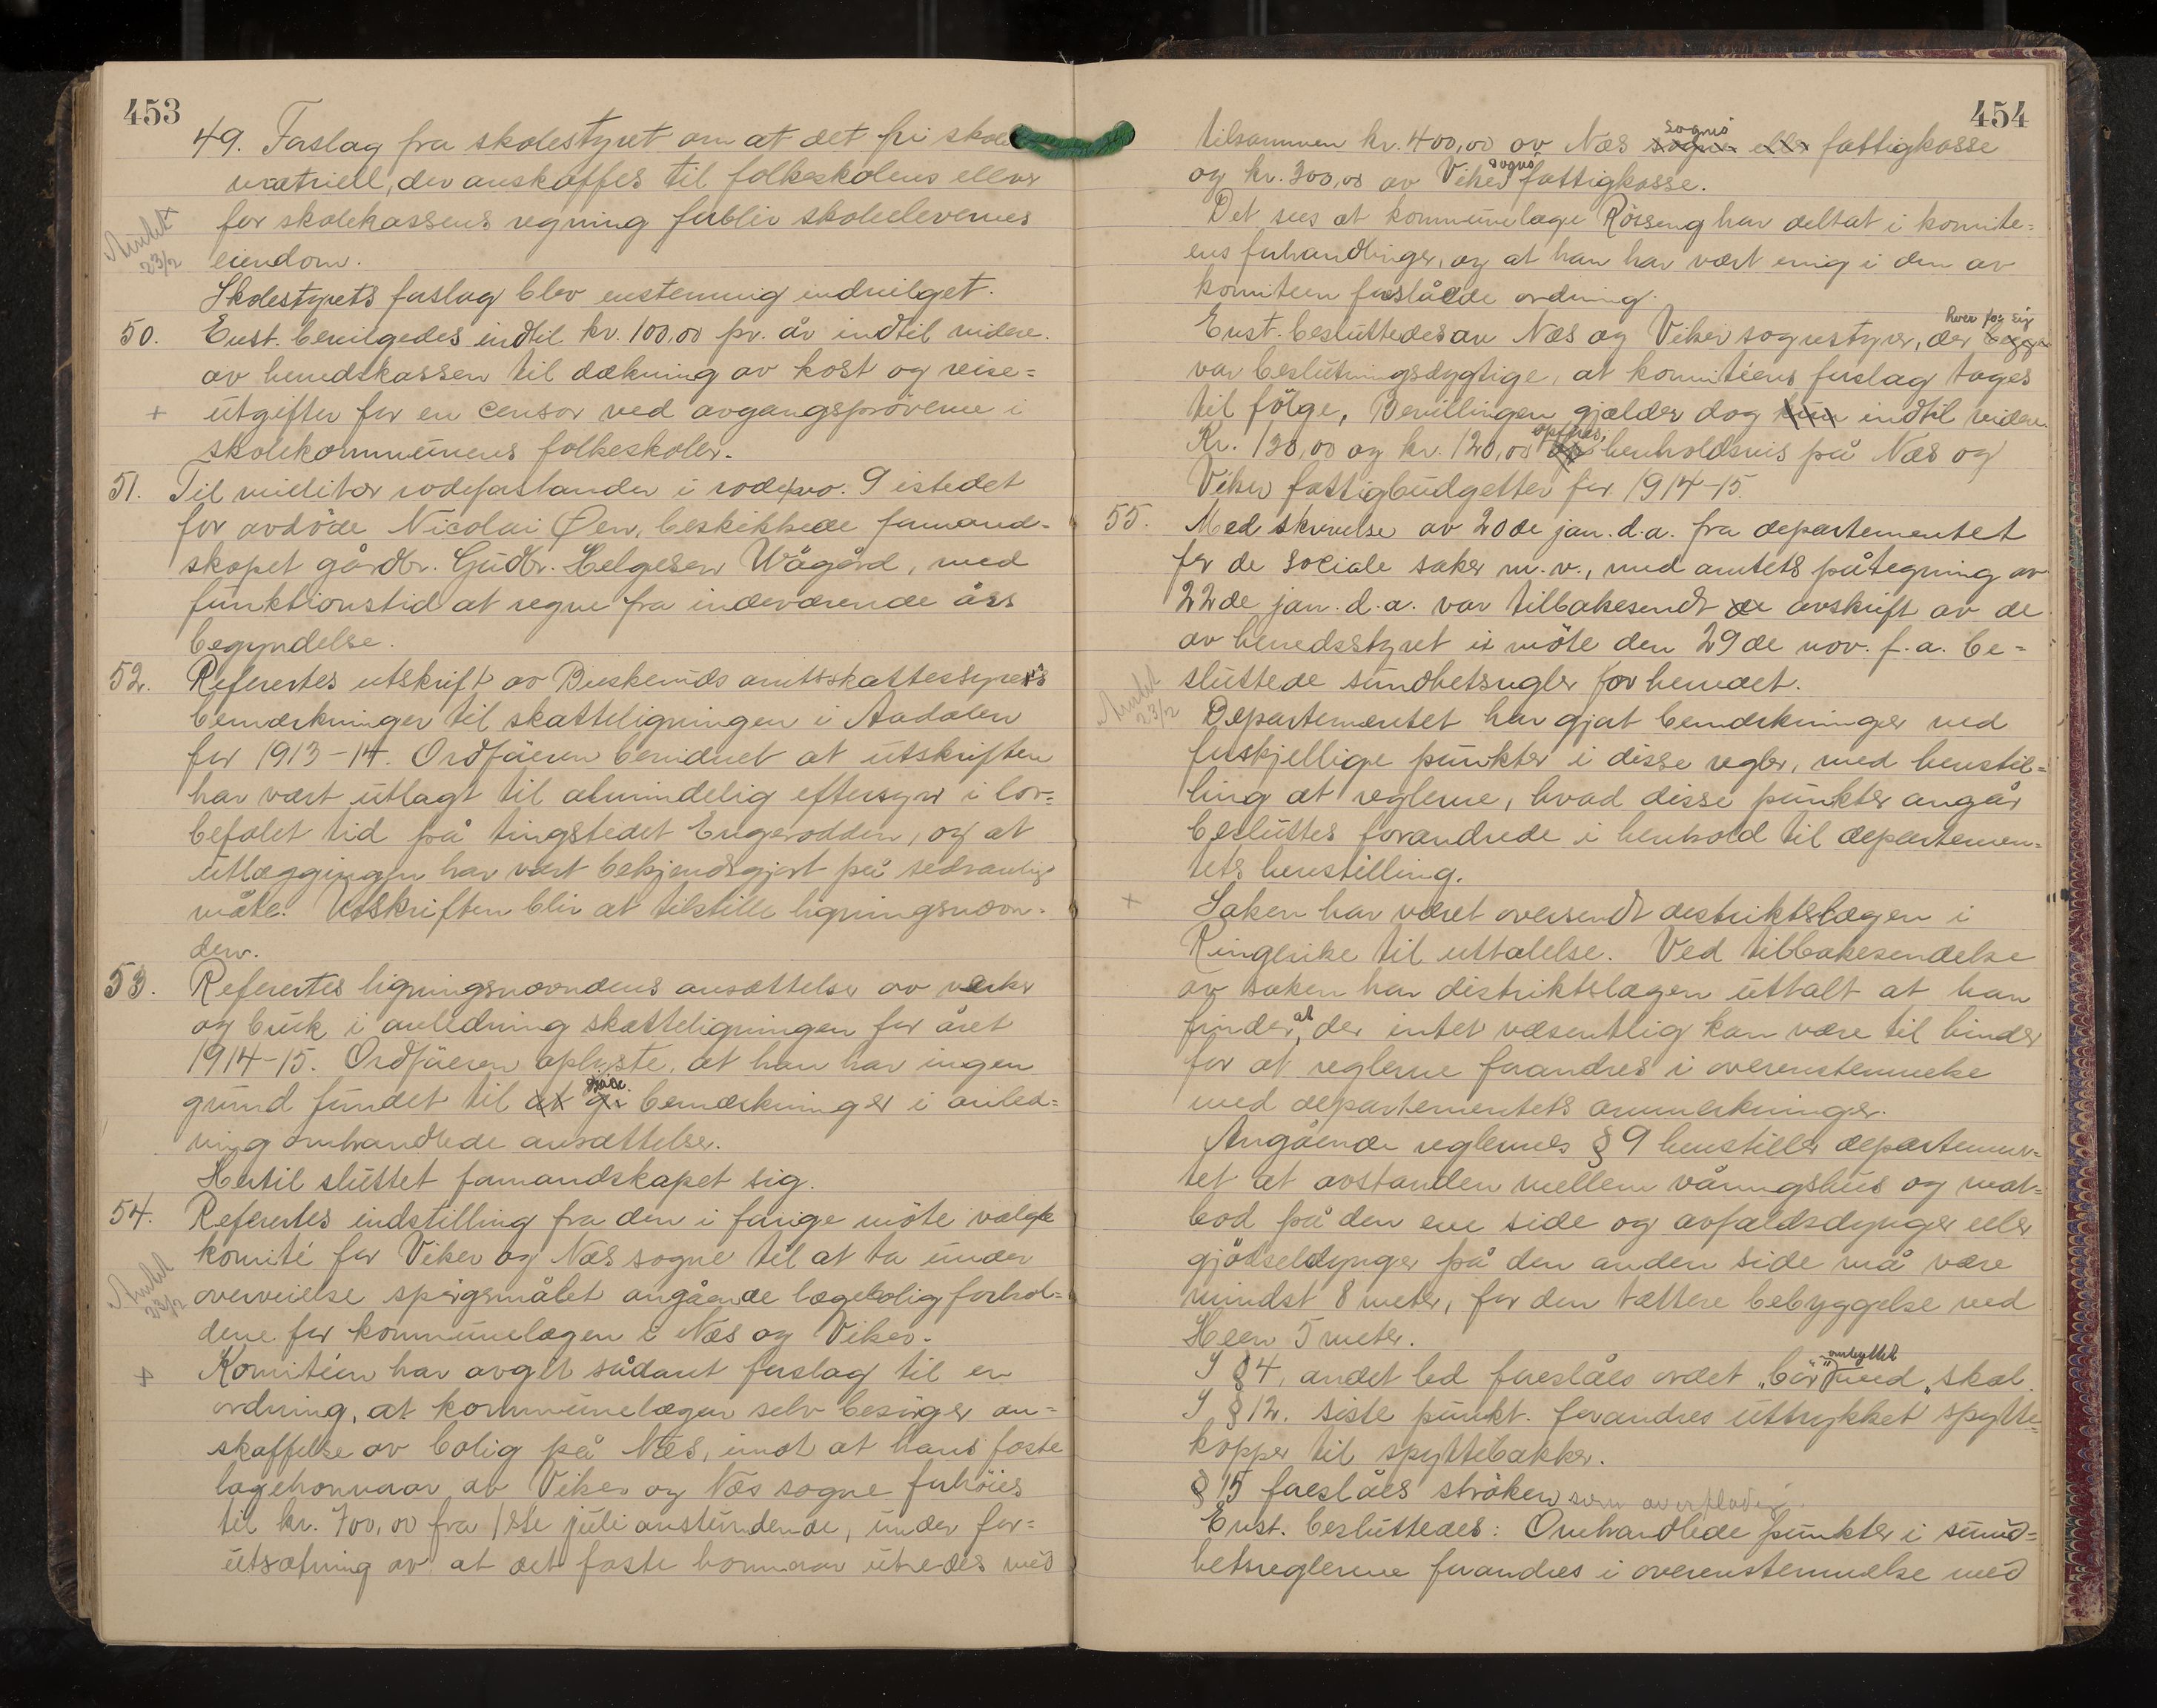 453
49. Forslag fra skolestyret om at det fri skole
matriell, der anskaffes til folkeskolens elever
for skolekassens regning forblir skoleelevernes
eiendom.
Amtet
23/2
Skolestyrets forslag blev enstemmig indvilget.
50. Enst. bevilgedes indtil kr. 100,00 pr. år indtil videre
av herredskassen til dækning av kost og reise=
+ utgifter for en censor ved avgangsprøverne i
skolekommunens folkeskoler.
51. Til militær rodeforstander i rode no. 9 istedet
for avdøde Nicolai Øen, beskikkede formand-
skapet gårdbr. Gudbr. Helgesen Wågård, med
funktionstid at regne fra indeværende års
begyndelse.
52. Refereres utskrift av Buskeruds amtsskattestyres
bemærkninger til skatteligningen i Aadalen
for 1913-14. Ordføreren bemidnet at utskriften
har vært utlagt til almindelig eftersyn i lov=
befalet tid på tingstedet Engerodden, og at
utlæggingen har vært bekjendtgjort på sedvanlig
måte. Utskriften blir at tilstille ligningsnævn-
den.
53. Referertes ligningsnævndens ansættelse av verker
og bruk i anledning skatteligningen for året
1914-15. Ordføreren oplyste, at han har ingen
grund fundet til at gi gjøre bemærkninger i anled=
ning omhandlede ansættelse.
Hertil sluttet formandskapet sig.
54. Referertes indstilling fra den i forrige møte valgte
komité for Viker og Næs sogne til at ta under
Amtet
23/2
overveielse spørgsmålet angående lægeboligforhol=
dene for kommunelægen i Næs og Viker.
+ Komitéen har avgit sådant forslag til en
ordning, at kommunelægen selv besørger an=
skaffelse av bolig på Næs, imot at hans faste
lægehonorar av Viker og Næs sogne forhøies
til kr. 700,00 fra 1ste juli anstundende, under for=
utsætning av at det faste honorar utredes med
454
tilsammen kr. 400,00 av Næs sogns fattigkasse
og kr. 300,00 av Viker sogns fattigkasse.
Det sees at kommunelæge Rösseng har deltat i komite=
ens forhandlinger, og at han har vært enig i den av
komiteen foreslåede ordning.
Enst. besluttedes av Næs og Viker sognestyrer, der hver for sig
var beslutningsdygtige, at komitéens forslag tages
til følge, Bevillingen gjælder dog kun indtil videre.
Kr. 130,00 og kr. 120,00 opføres henholdsvis på Næs og
Viker fattigbudgetter for 1914-15.
55. Med skrivelse av 20de jan. d.a. fra departementet
for de sociale saker m.v., med amtets påtegning av
22de jan. d.a. var tilbakesendt de avskrift av de
av herredsstyret i møte den 29de nov. f.a. be=
sluttede sundhetsregler for herredet.
Amtet
23/2
Departementet har gjort bemærkninger ved
forskjellige punkter i disse regler, med henstil=
ling at reglerne, hvad disse punkter angår
besluttes forandrede i henhold til departemen=
tets henstilling.
+ Saken har været oversendt destriktslægen i
Ringerike til uttalelse. Ved tilbakesendelse
av saken har distriktslægen uttalt at han
finder, at der intet væsentlig kan være til hinder
for at reglerne forandres i overenstemmelse
med departementets anmerkninger.
Angående reglernes § 9 henstiller departemen=
tet at avstanden mellem våningshus og mat=
bod på den ene side og avfaldsdynger eller
gjødseldynger på den anden side må være
mindst 8 meter, for den tættere bebyggelse ved
Heen 5 meter.
I § 4, andet led foreslåes ordet „bør" ombyttet med „skal
I § 12. siste punkt. forandres uttrykket spytte=
kopper til spyttebakker.
§ 15 foreslåes strøken som overflødig.
Enst. besluttedes: Omhandlede punkter i sund=
hetsreglerne forandres i overenstemmelse med